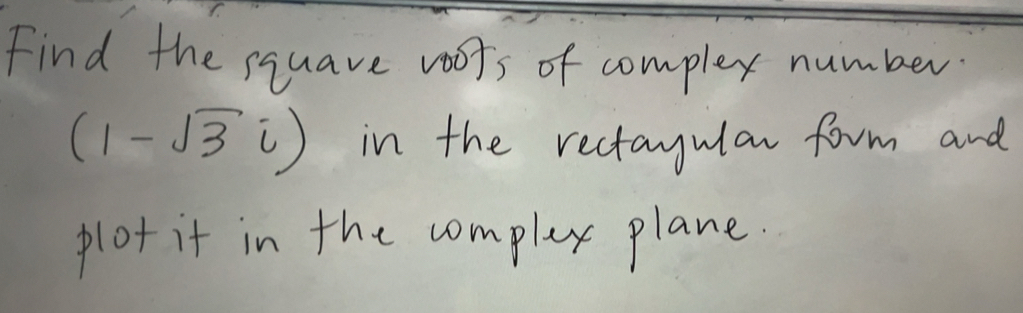 Find the square roots of complex number.
(1-√3 i) in the rectangular form and
plot it in the complex plane.